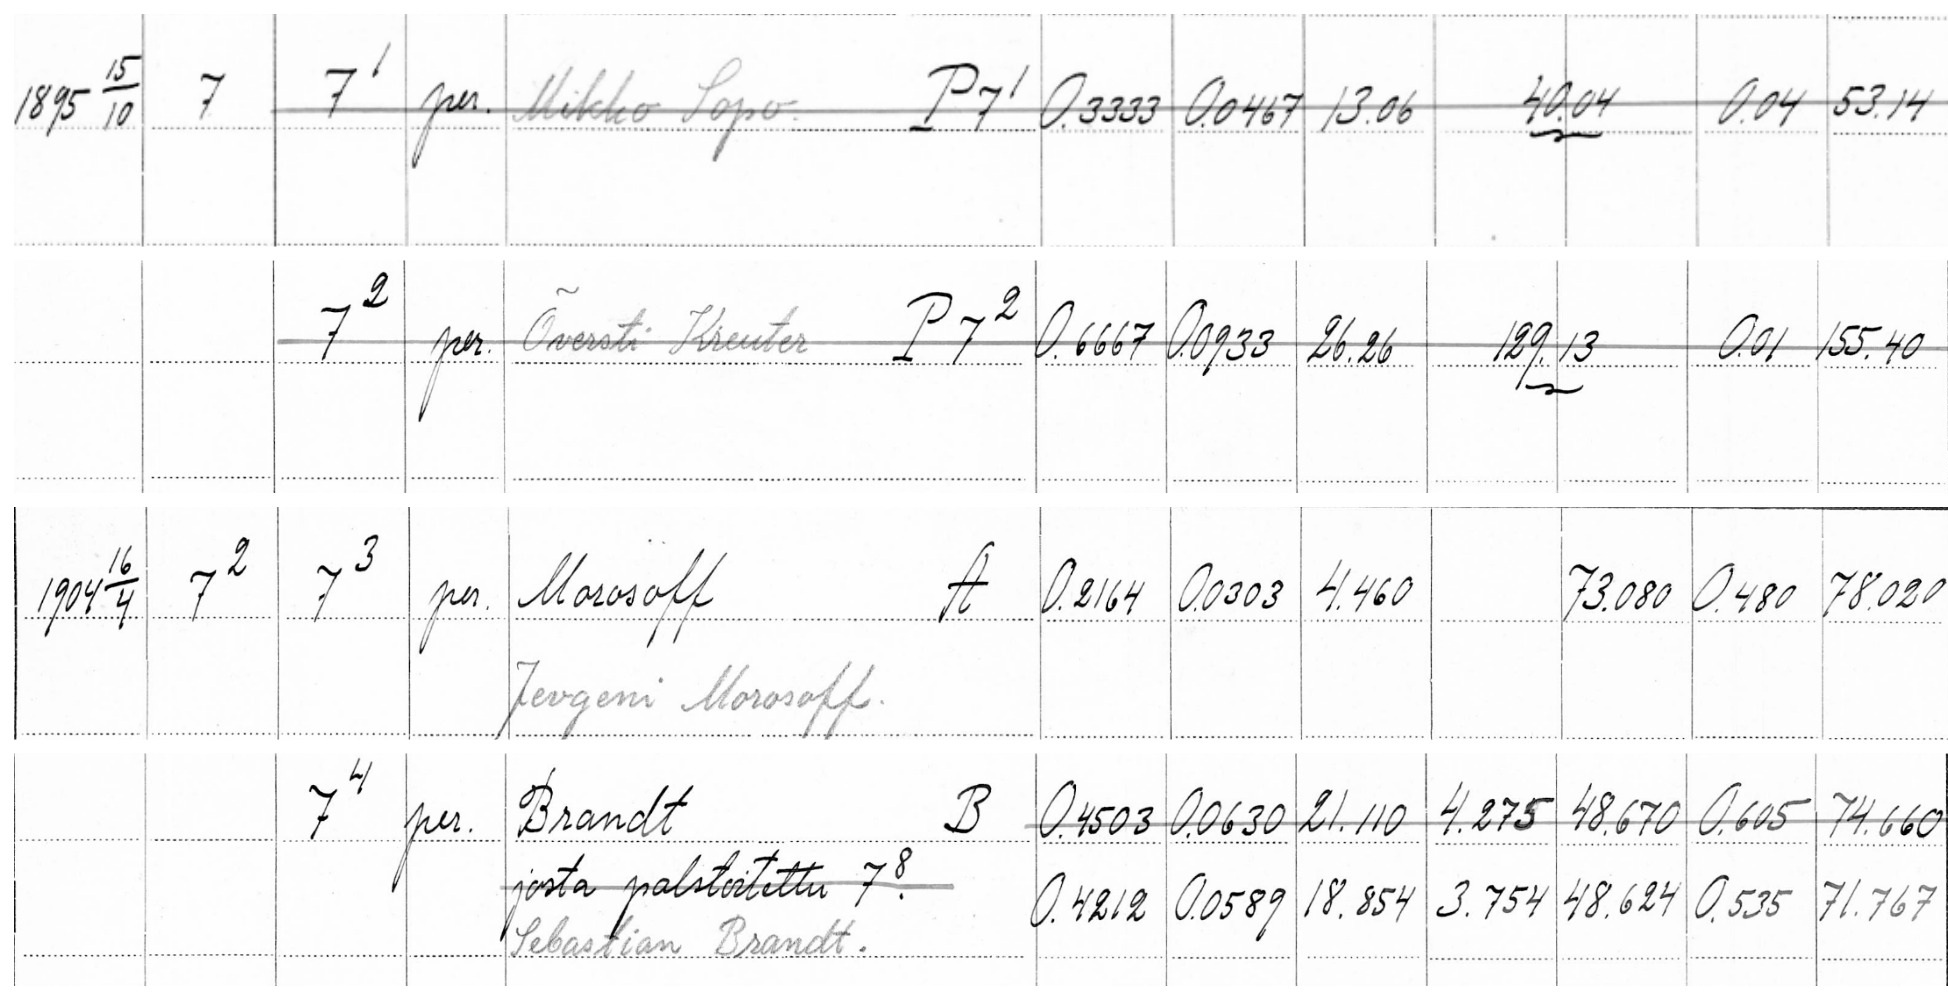 1895 15/10 7 7¹ per. Mikko Sopo. P 7¹ 0.3333 0.0467 13.06 40.04 0.04 53.14
7² per. Översti Kreuter P 7² 0.6667 0.0933 26.26 129.13 0.01 155.40
1904 16/4 7² 7³ per. Morosoff A 0.2164 0.0303 4.460 73.080 0.480 78.020
Jevgeni Morosoff.
7⁴ per. Brandt B 0.4503 0.0630 21.110 4.275 48.670 0.605 74.660
josta palstoitettu 7⁸. 0.4212 0.0589 18.854 3.754 48.624 0.535 71.767
Sebastian Brandt.